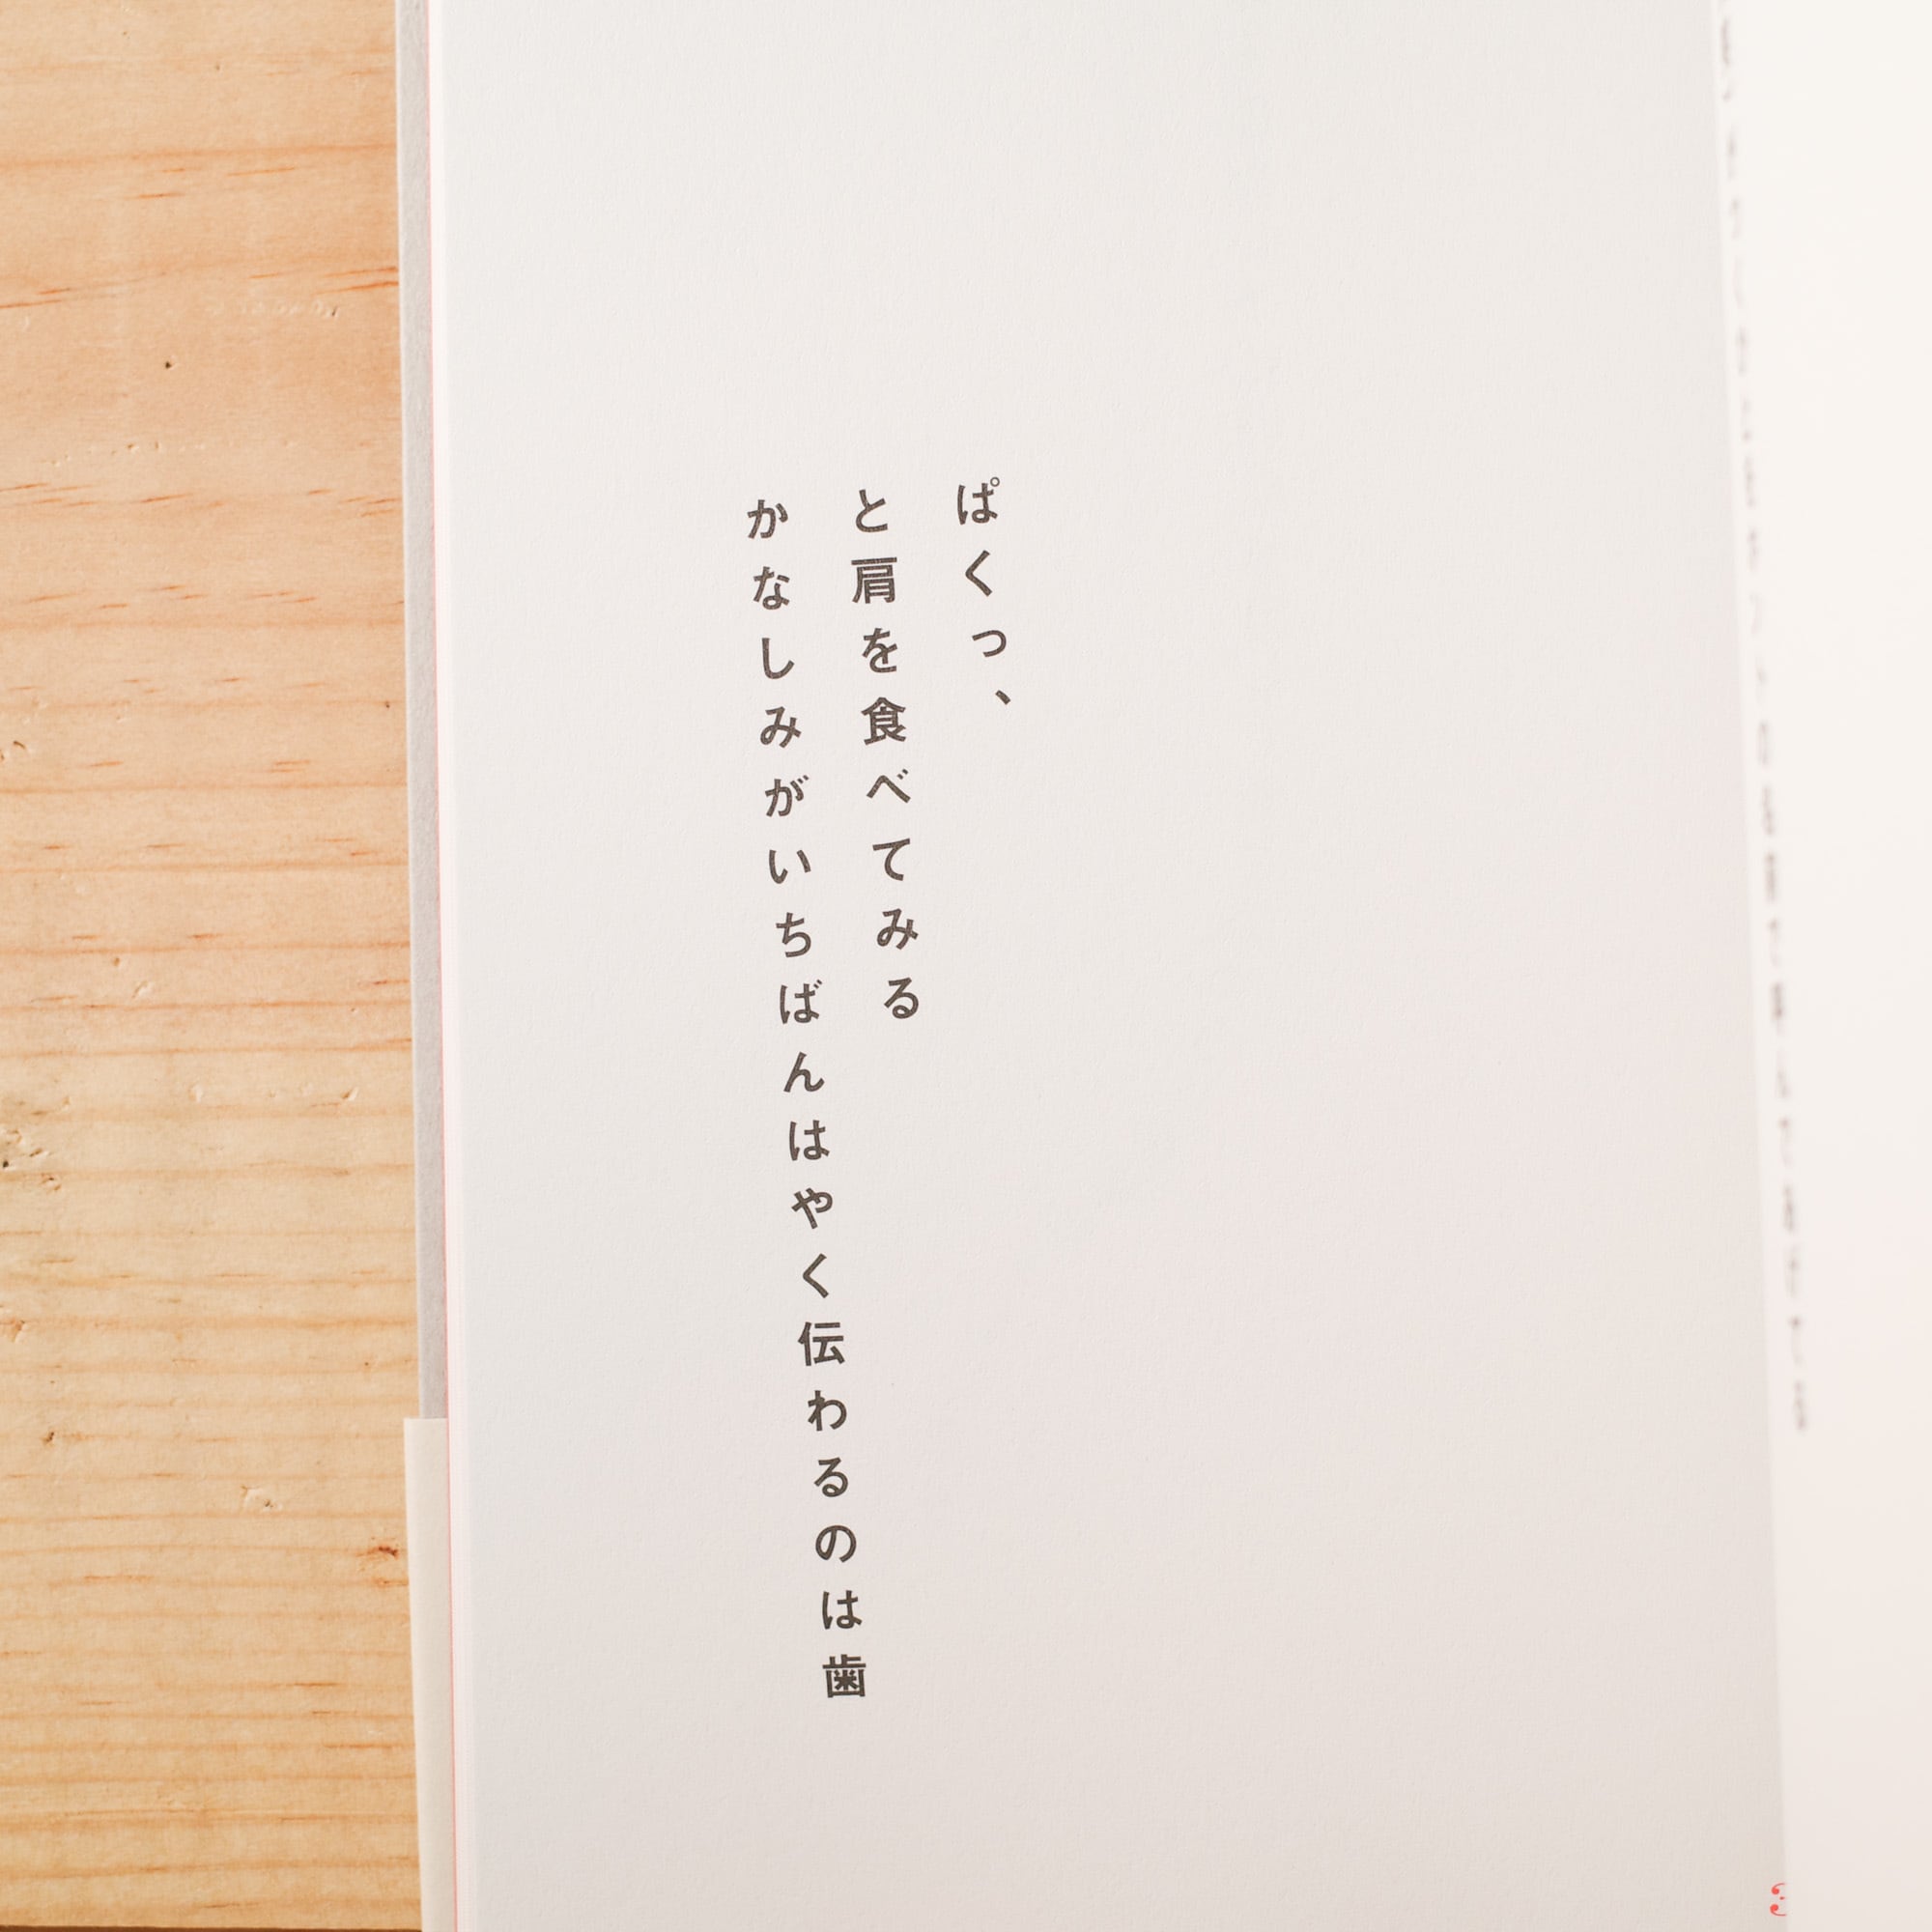 ぱくっ、
と肩を食べてみる
かなしみがいちばんはやく伝わるのは歯